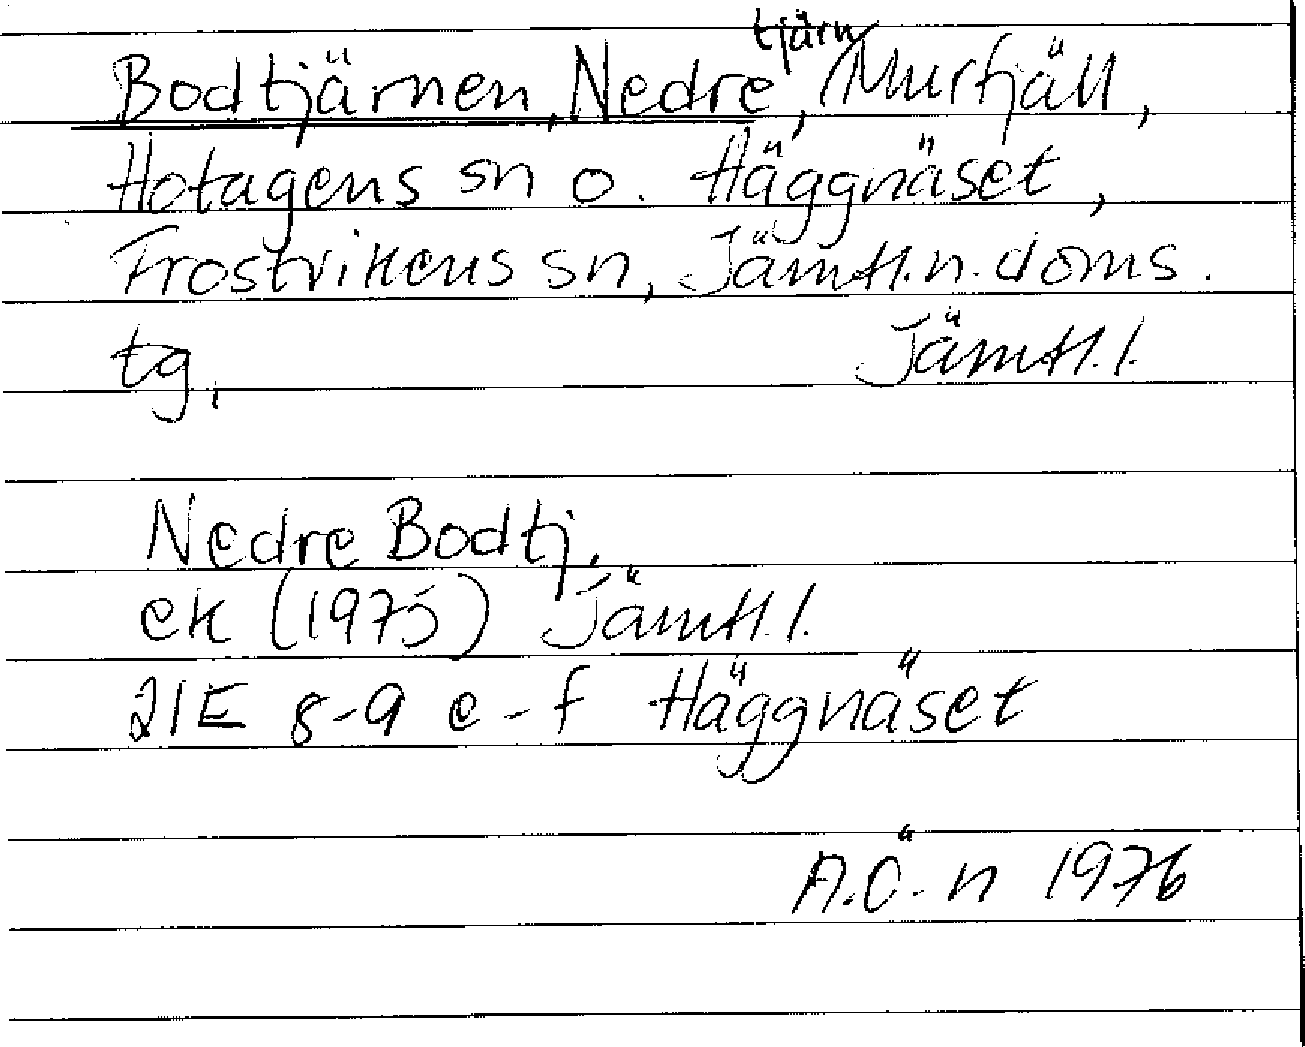 Bodtjärnen, Nedre, tjärn, Murfjäll,
Hotagens sn o. Häggnäset,
Frostvikens sn, Jämtl.n. doms.
tg, Jämtl. l.
Nedre Bodtj.
ek (1975) Jämtl. l.
21E 8-9 e-f Häggnäset
A.Ö-n 1976